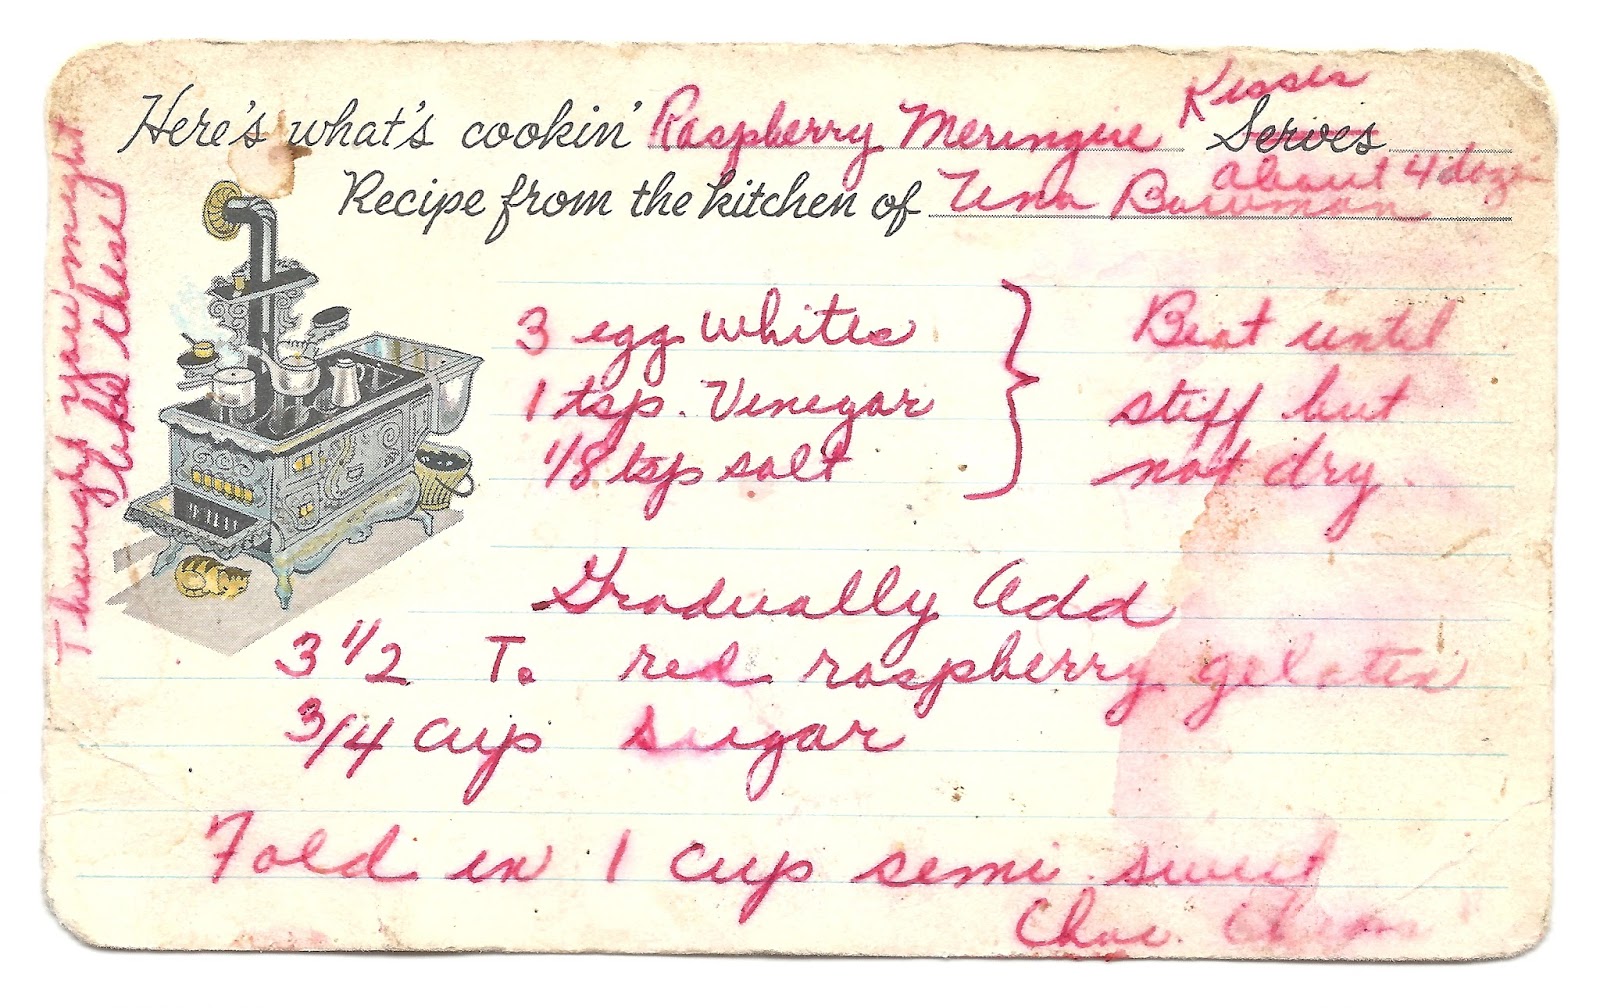 Kisses
Here's what's cookin' Raspberry Meringue Serves
about 4 dozen
Recipe from the kitchen of Una Bowman
3 egg whites } Beat until
1 tsp. Vinegar stiff but
1/8 tsp salt not dry.
Gradually Add
3 1/2 T. red raspberry gelatin
3/4 cup sugar
Fold in 1 cup semi sweet
Choc.
Thought you might
like these